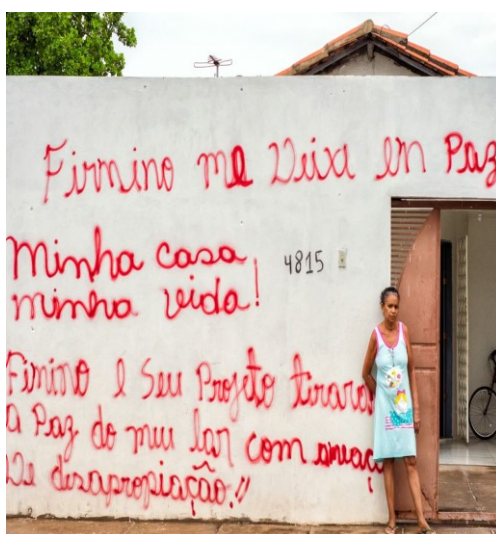 Firmino me deixe em Paz
Minha casa,
4815
minha vida!
Fimino e Seu Projeto tiraram
a Paz do meu lar com ameaça
de desapropiação!!